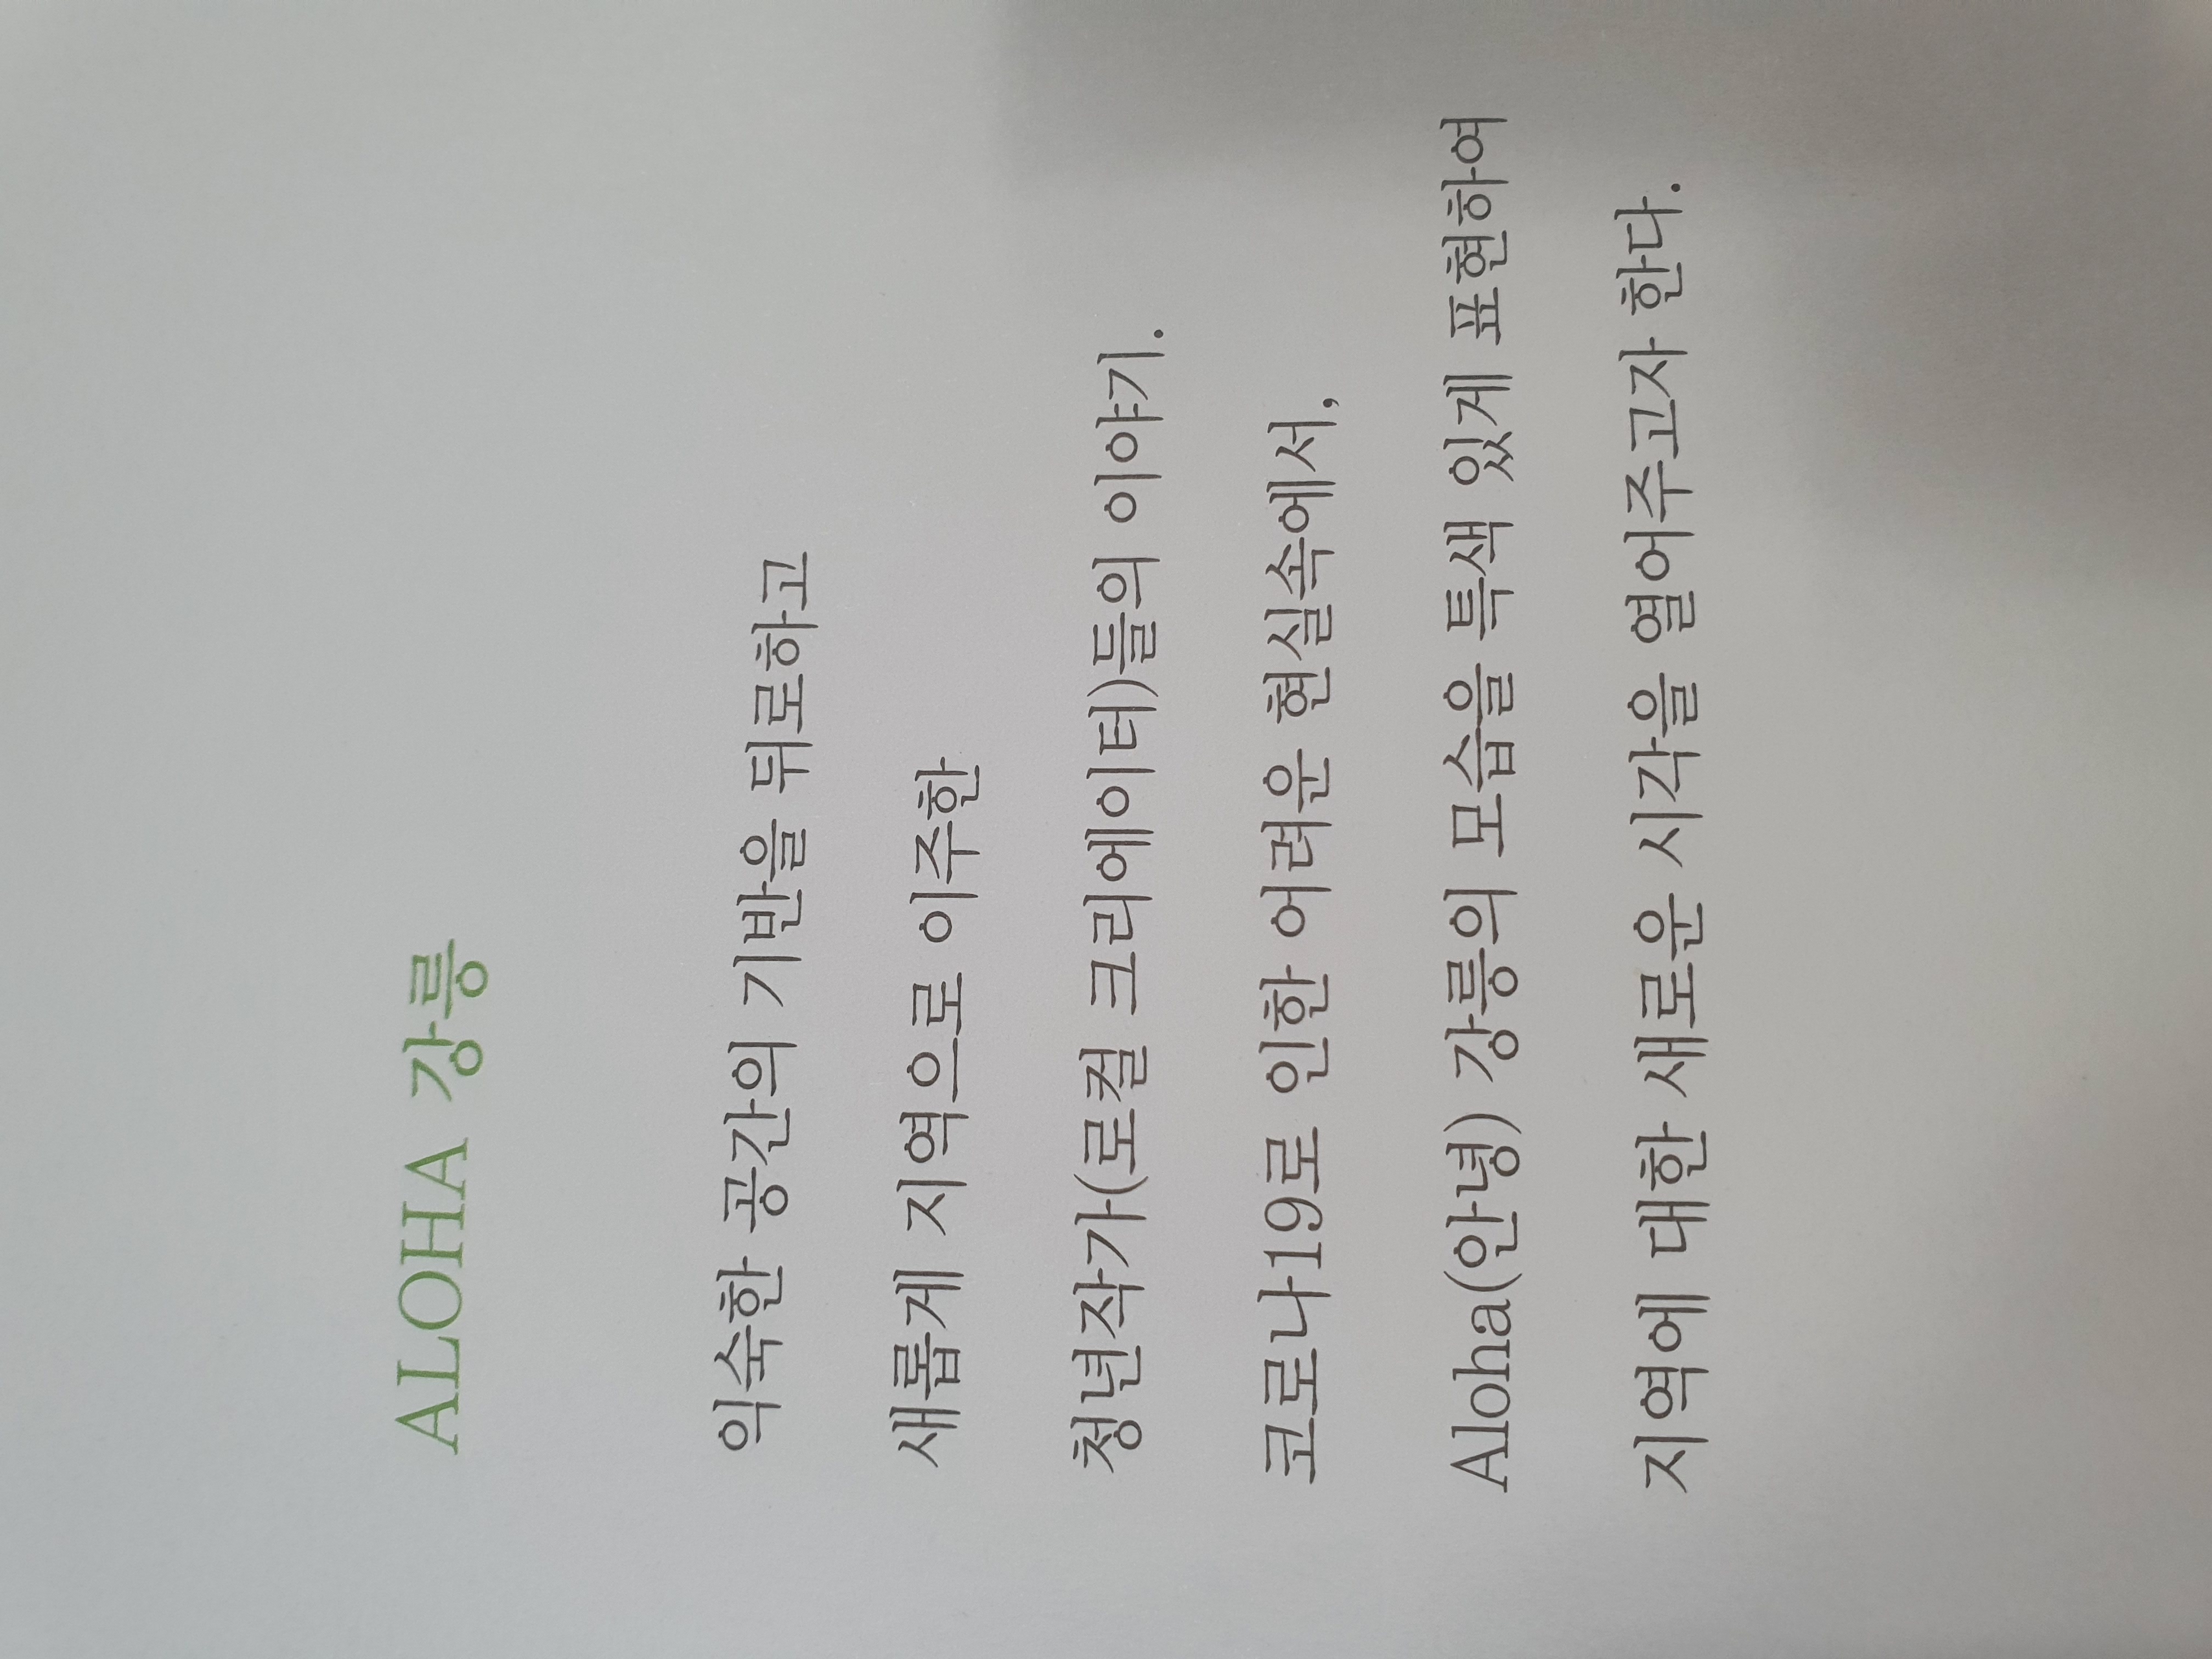 ALOHA 강릉
익숙한 공간의 기반을 뒤로하고
새롭게 지역으로 이주한
청년작가(로컬 크리에이터)들의 이야기.
코로나19로 인한 어려운 현실속에서,
Aloha(안녕) 강릉의 모습을 특색 있게 표현하여
지역에 대한 새로운 시각을 열어주고자 한다.